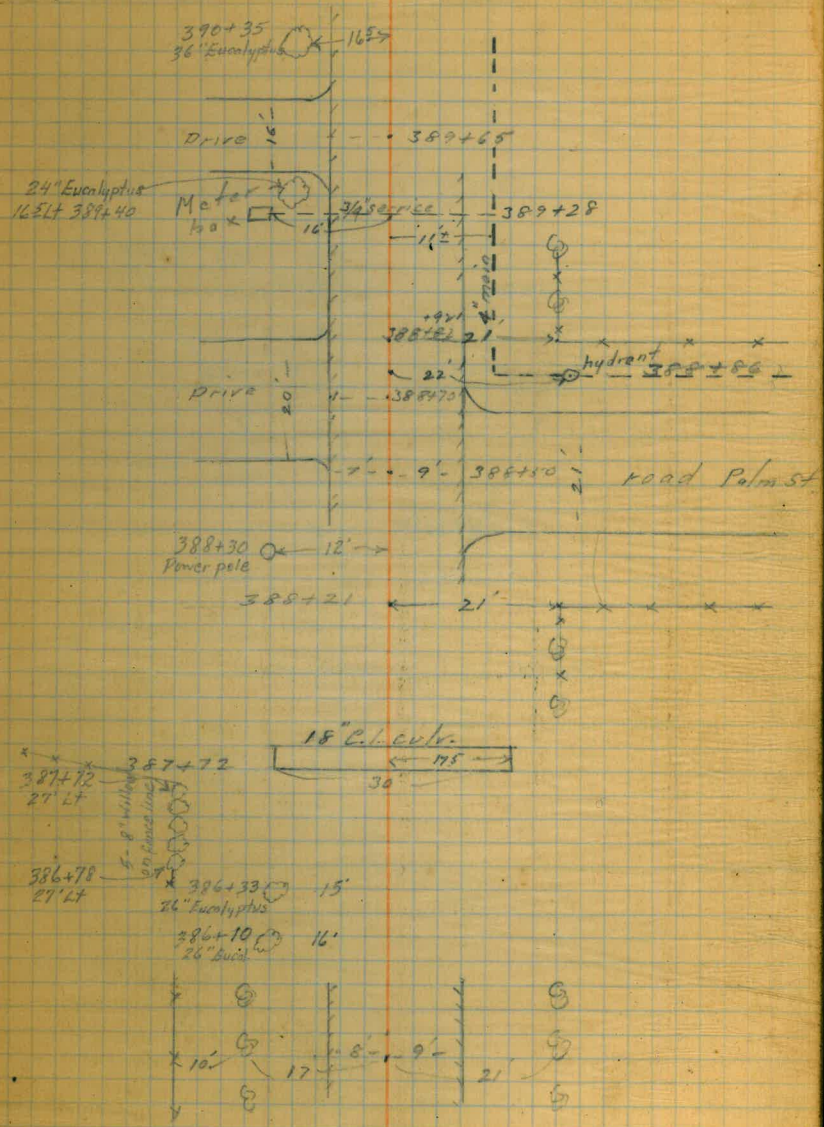 390+35
36" Eucalyptus
16.5
Drive
16'
389+65
24" Eucalyptus
16.5 Lt 389+40
Meter
box
3/4" service
389+28
16'
11'±
4" main
+92
388+82
21'
hydrant
388+86
22'
Drive
20'
388+70
7'
9'
388+50
21'
road Palm St
388+30
Power pole
12'
388+21
21'
18" C.I. culv.
17.5
30'
387+72
387+72
27' Lt
5-8" Willows
on fence line
386+78
27' Lt
386+33
15'
26" Eucalyptus
386+10
16'
26" Eucal.
8'
9'
10'
17
21'